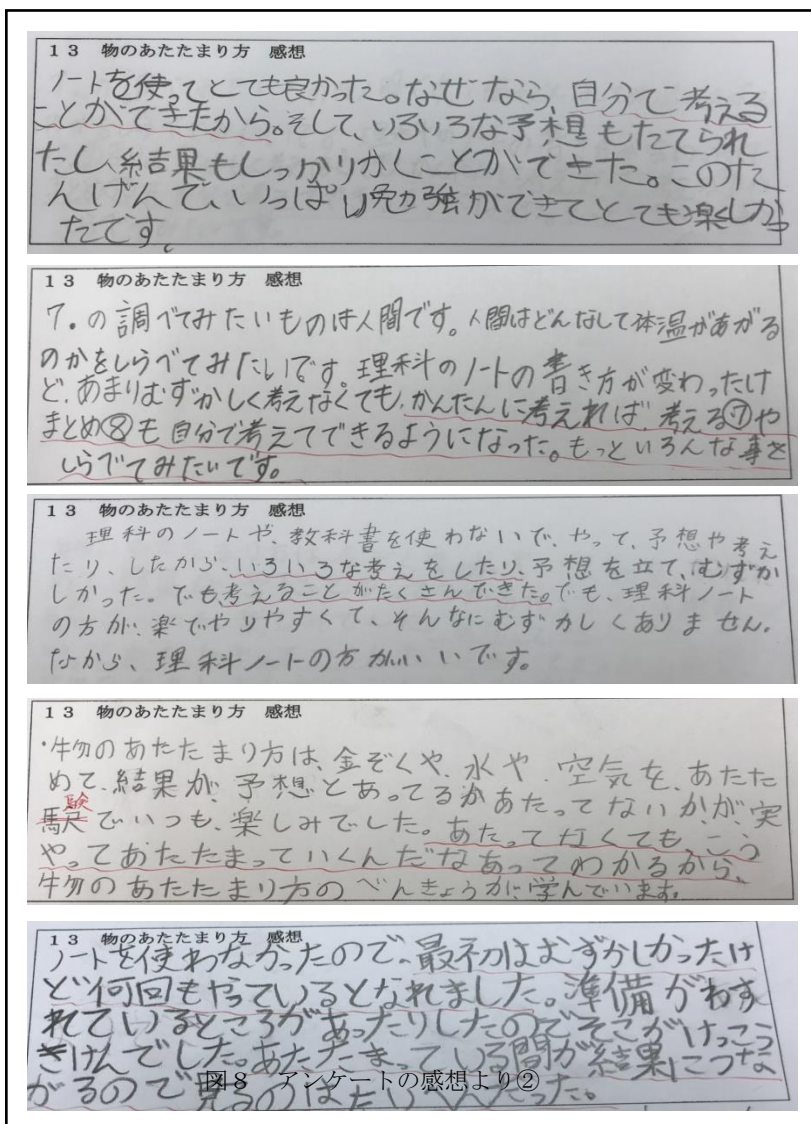 13 物のあたたまり方 感想
ノートを使ってとても良かった。なぜなら、自分で考える
ことができたから。そして、いろいろな予想もたてられ
たし、結果もしっかりかくことができた。このた
んげんで、いっぱい勉強ができてとても楽しかっ
たです。
13 物のあたたまり方 感想
7.の調べてみたいものは人間です。人間はどんなして体温があがる
のかをしらべてみたいです。理科のノートの書き方が変わったけ
ど、あまりむずかしく考えなくても、かんたんに考えれば、考える⑦や
まとめ⑧も自分で考えてできるようになった。もっといろんな事を
しらべてみたいです。
13 物のあたたまり方 感想
理科のノートや、教科書を使わないで、やって、予想や考え
たり、したから、いろいろな考えをしたり、予想を立て、むずか
しかった。でも考えることがたくさんできた。でも、理科ノート
の方が、楽でやりやすくて、そんなにむずかしくありません。
だから、理科ノートの方がいいです。
13 物のあたたまり方 感想
・物のあたたまり方は、金ぞくや、水や、空気を、あたた
めて、結果が、予想とあってるかあたってないかが、実
験
駅でいつも、楽しみでした。あたってなくても、こう
やってあたたまっていくんだなあってわかるから、
物のあたたまり方のべんきょうが、学んでいます。
13 物のあたたまり方 感想
ノートを使わなかったので、最初はむずかしかったけ
ど何回もやっているとなれました。準備がわす
れているところがあったりしたのでそこがけっこう
きけんでした。あたたまっている間が結果につな
がるので見るのはたいへんだった。
図8 アンケートの感想より②